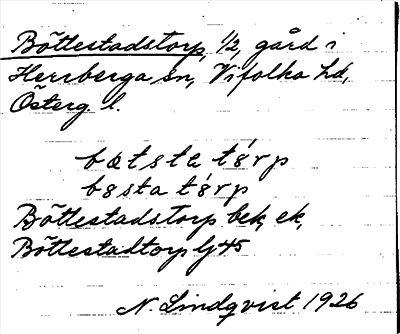 Böttestadstorp, 1/2, gård i
Herrberga sn, Vifolka hd,
Österg. l.
bøtsta tørp
bøsta tørp
Böttestadstorp bek, ek,
Böttestadtorp lj 45
N. Lindqvist 1926